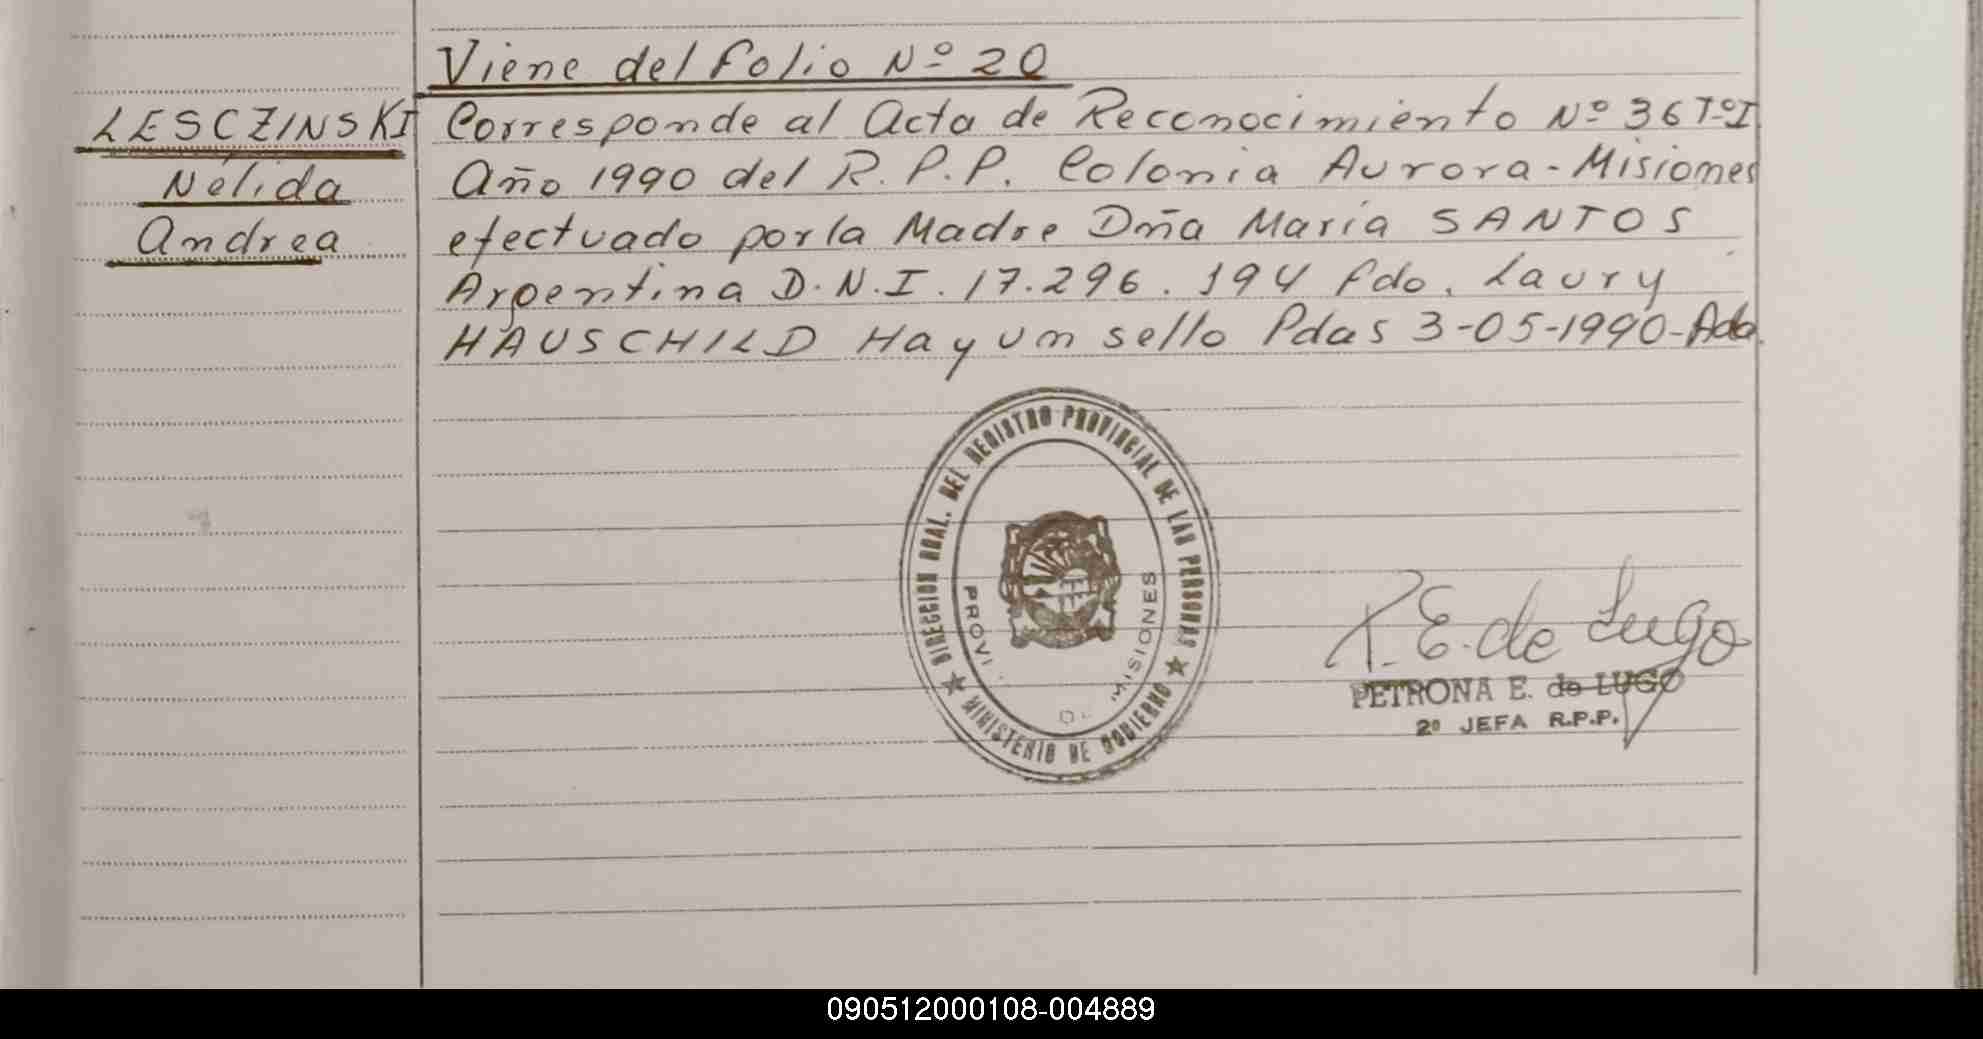 Viene del folio Nº 20
LESCZINSKI
Nélida
Andrea
Corresponde al Acta de Reconocimiento Nº 36 TºI
Año 1990 del R.P.P. Colonia Aurora - Misiones
efectuado por la Madre Dña María SANTOS
Argentina D.N.I. 17.296.194 fdo. Laury
HAUSCHILD Hay un sello Pdas 3-05-1990-Ada.
DIRECCION GRAL. DEL REGISTRO PROVINCIAL DE LAS PERSONAS
★ MINISTERIO DE GOBIERNO ★
PROVI
MISIONES
P. E. de Lugo
PETRONA E. de LUGO
2º JEFA R.P.P.
090512000108-004889